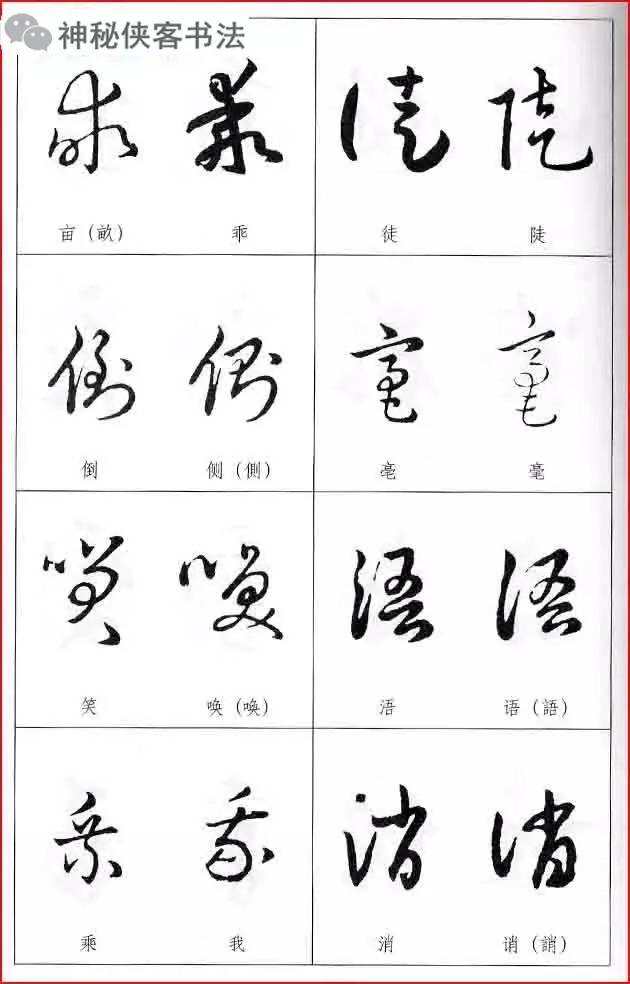 神秘侠客书法
亩（畝） 乖 徒 陡
倒 侧（側） 亳 毫
笑 唤（喚） 浯 语（語）
乘 我 消 诮（誚）